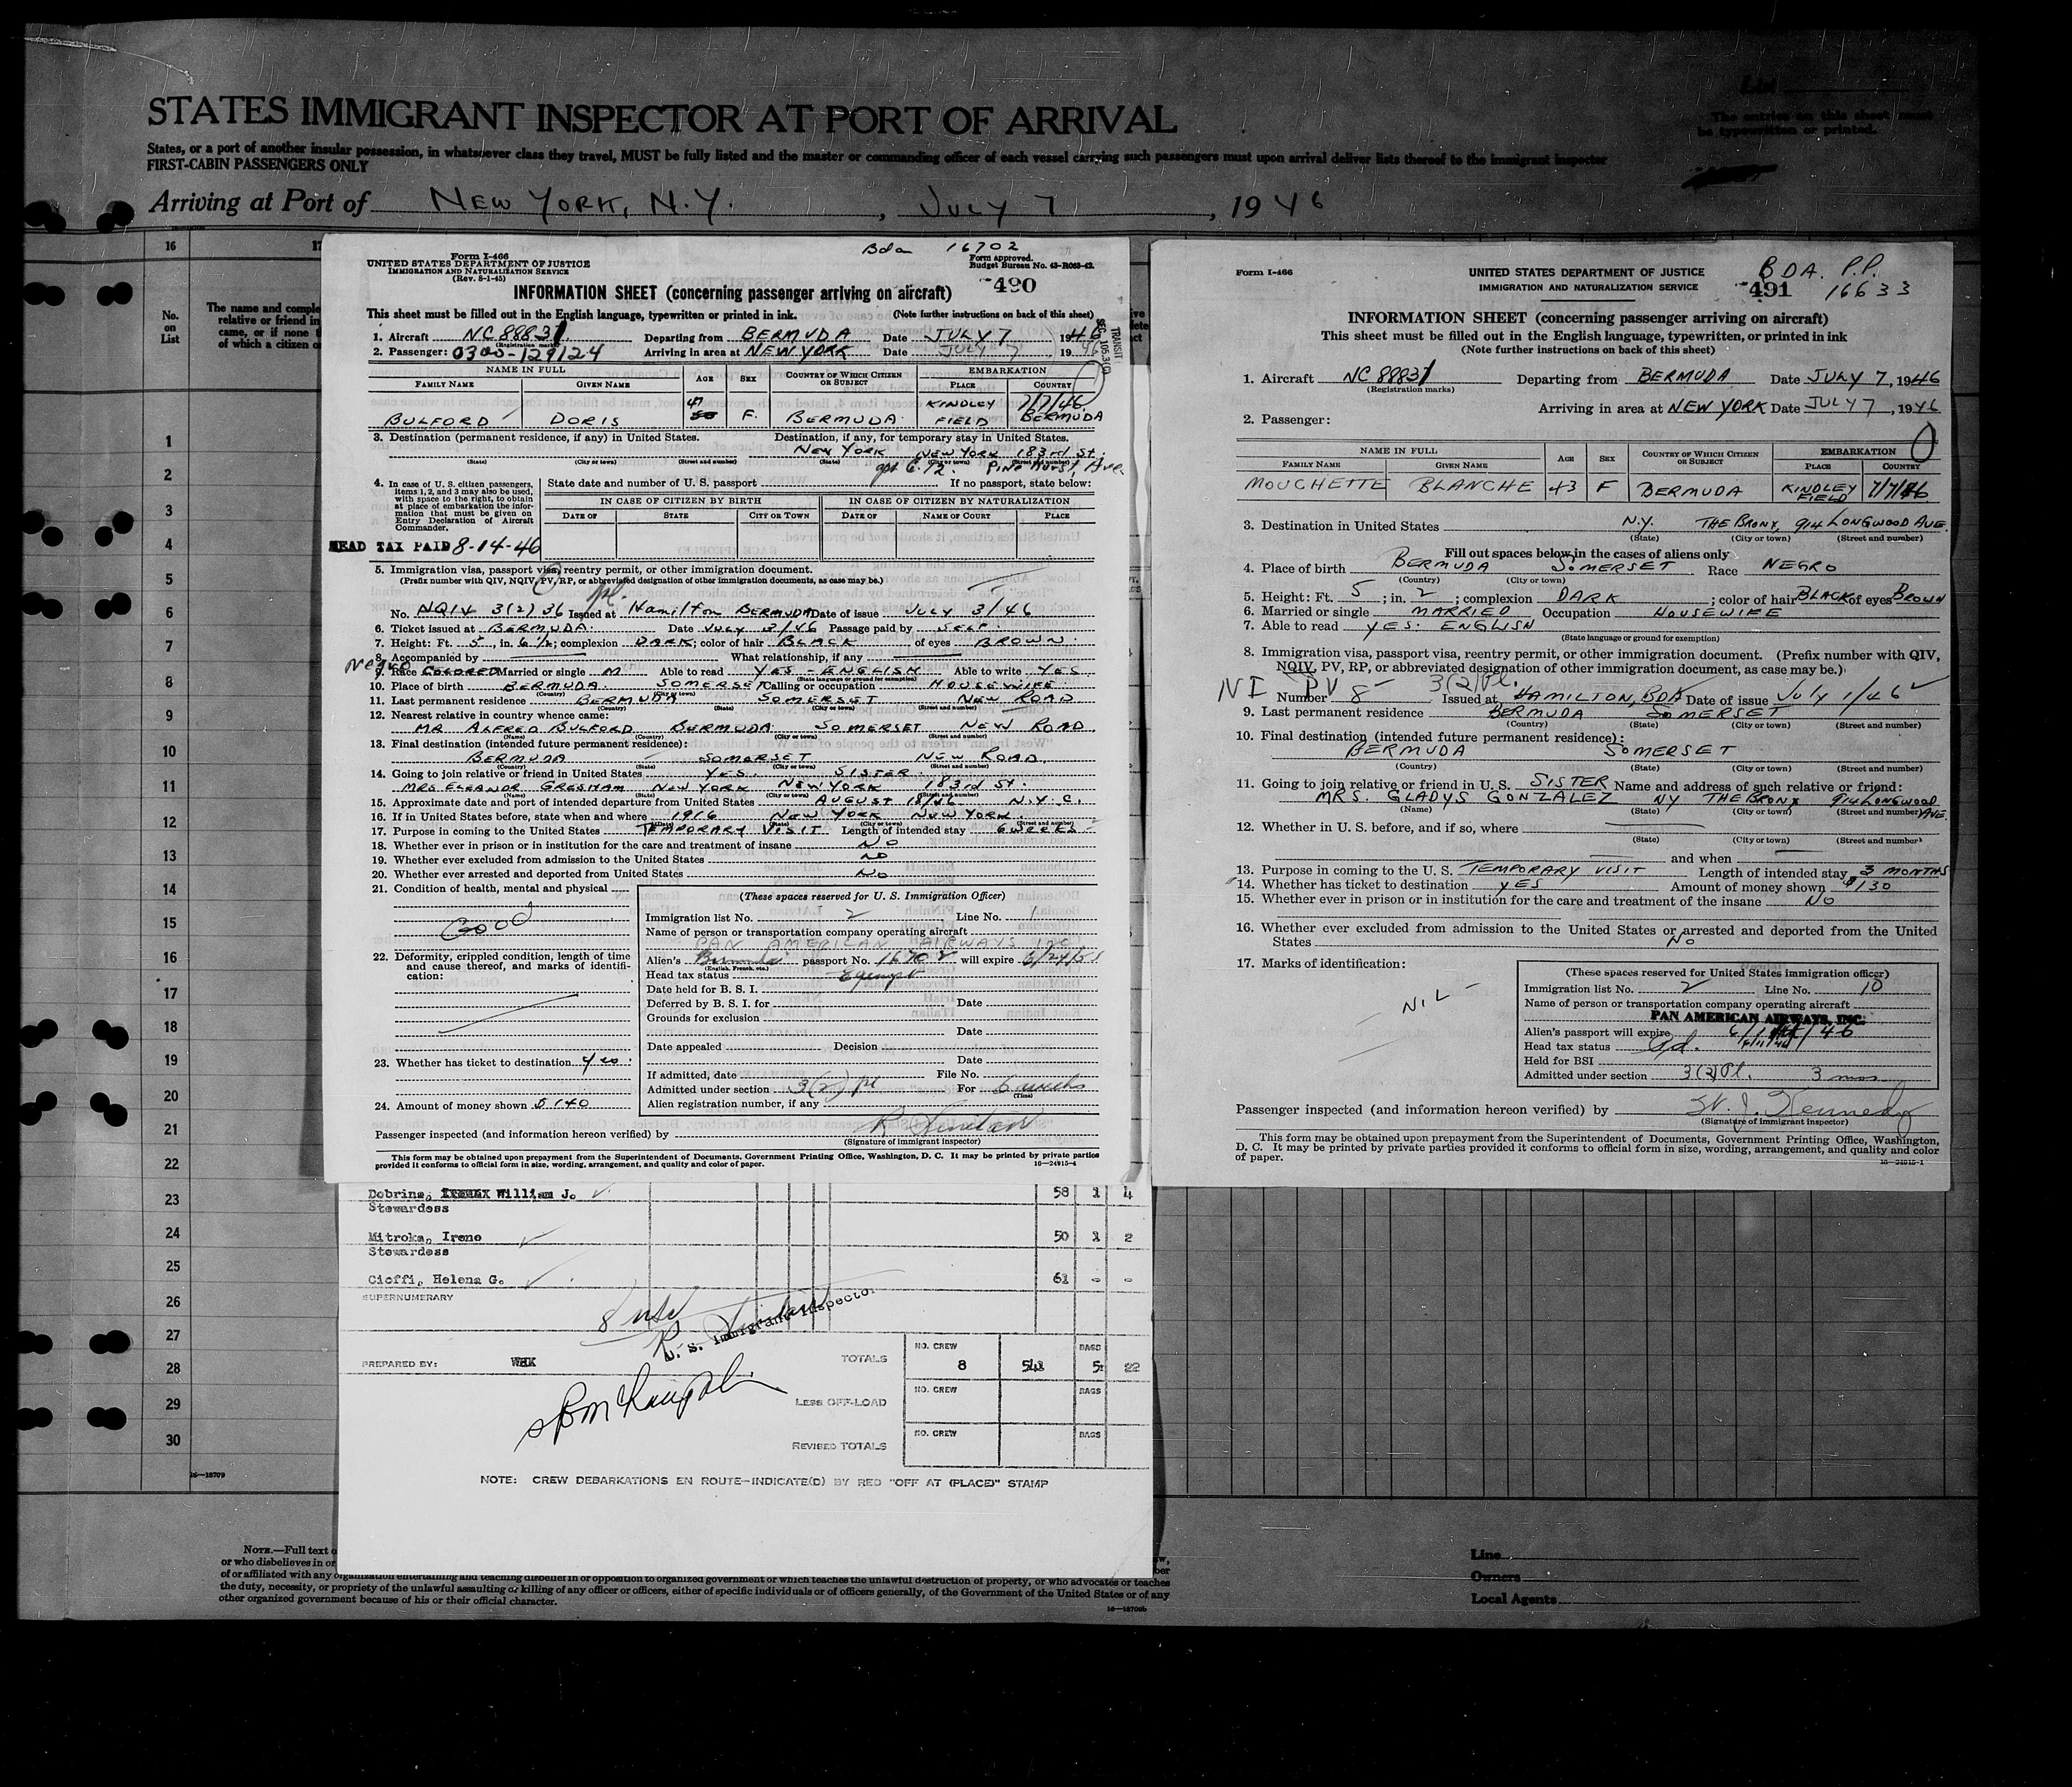 STATES IMMIGRANT INSPECTOR AT PORT OF ARRIVAL
States, or a port of another insular possession, in whatsoever class they travel, MUST be fully listed and the master or commanding officer of each vessel carrying such passengers must upon arrival deliver lists thereof to the immigrant inspector
FIRST-CABIN PASSENGERS ONLY
List
The entries on this sheet must
be typewritten or printed.
Arriving at Port of NEW YORK, N.Y. , JULY 7 , 1946
16
No.
on
List
The name and comple
relative or friend in
came, or if none t
of which a citizen o
1
2
3
4
5
6
7
8
9
10
11
12
13
14
15
16
17
18
19
20
21
22
23
24
25
26
27
28
29
30
16—18709
Bda 16702
Form I-466
UNITED STATES DEPARTMENT OF JUSTICE
IMMIGRATION AND NATURALIZATION SERVICE
(Rev. 8-1-45)
Form approved.
Budget Bureau No. 43-R083-42.
490
INFORMATION SHEET (concerning passenger arriving on aircraft)
This sheet must be filled out in the English language, typewritten or printed in ink. (Note further instructions on back of this sheet)
1. Aircraft NC 88831 Departing from BERMUDA Date JULY 7 1946
(Registration marks)
2. Passenger: 0300-129124 Arriving in area at NEW YORK Date JULY 7 19 46
NAME IN FULL AGE SEX COUNTRY OF WHICH CITIZEN OR SUBJECT EMBARKATION
FAMILY NAME GIVEN NAME PLACE COUNTRY
47 KINDLEY 7/7/46
BULFORD DORIS F. BERMUDA FIELD BERMUDA
3. Destination (permanent residence, if any) in United States. Destination, if any, for temporary stay in United States.
NEW YORK NEW YORK 183rd St.
(State) (City or town) (Street and number) (State) (City or town) (Street and number)
apt E.12. Pinehurst Ave.
4. In case of U. S. citizen passengers, items 1, 2, and 3 may also be used, with space to the right, to obtain at place of embarkation the information that must be given on Entry Declaration of Aircraft Commander.
State date and number of U. S. passport If no passport, state below:
IN CASE OF CITIZEN BY BIRTH IN CASE OF CITIZEN BY NATURALIZATION
DATE OF STATE CITY OR TOWN DATE OF NAME OF COURT PLACE
HEAD TAX PAID 8-14-46
5. Immigration visa, passport visa, reentry permit, or other immigration document.
(Prefix number with QIV, NQIV, PV, RP, or abbreviated designation of other immigration documents, as case may be.)
No. NQIV 3(2) 36 Issued at Hamilton BERMUDA Date of issue JULY 3/46
6. Ticket issued at BERMUDA. Date JULY 3/46 Passage paid by SELF.
7. Height: Ft. 5, in. 6 1/2; complexion DARK; color of hair BLACK of eyes BROWN.
8. Accompanied by What relationship, if any
Negro
9. Race COLORED Married or single M Able to read YES - ENGLISH Able to write YES
(State language or ground for exemption)
10. Place of birth BERMUDA. SOMERSET Calling or occupation HOUSEWIFE
(Country) (City or town)
11. Last permanent residence BERMUDA SOMERSET NEW ROAD
(Country) (State) (City or town) (Street and number)
12. Nearest relative in country whence came:
MR ALFRED BULFORD BERMUDA SOMERSET NEW ROAD.
(Name) (Country) (City or town) (Street and number)
13. Final destination (intended future permanent residence):
BERMUDA SOMERSET NEW ROAD.
(Country) (State) (City or town) (Street and number)
14. Going to join relative or friend in United States YES. SISTER.
MRS ELEANOR GRESHAM NEW YORK NEW YORK 183rd St.
(Name) (State) (City or town) (Street and number)
15. Approximate date and port of intended departure from United States AUGUST 18/46 N.Y.C.
16. If in United States before, state when and where 1916 NEW YORK NEW YORK.
(Date) (State) (City or town) (Street and number)
17. Purpose in coming to the United States TEMPORARY VISIT Length of intended stay 6 WEEKS
18. Whether ever in prison or in institution for the care and treatment of insane NO
19. Whether ever excluded from admission to the United States NO
20. Whether ever arrested and deported from United States NO
21. Condition of health, mental and physical
GOOD
22. Deformity, crippled condition, length of time and cause thereof, and marks of identification:
23. Whether has ticket to destination yes.
24. Amount of money shown $140
(These spaces reserved for U. S. Immigration Officer)
Immigration list No. 2 Line No. 1
Name of person or transportation company operating aircraft
PAN AMERICAN AIRWAYS INC
Alien's Bermuda passport No. 16702 will expire
(English, French, etc.)
Head tax status Exempt
Date held for B. S. I.
Deferred by B. S. I. for Date
Grounds for exclusion
Date
Date appealed Decision
Date
If admitted, date File No.
Admitted under section 3(2) pl For 6 weeks
(Time)
Alien registration number, if any
Passenger inspected (and information hereon verified) by
(Signature of immigrant inspector)
This form may be obtained upon prepayment from the Superintendent of Documents, Government Printing Office, Washington, D. C. It may be printed by private parties
provided it conforms to official form in size, wording, arrangement, and quality and color of paper. 16—24915-4
Dobrins, William J.
58 1 4
Stewardess
Mitroka, Irene 50 1 2
Stewardess
Cioffi, Helena G. 61 - -
SUPERNUMERARY
U. S. Immigrant Inspector
PREPARED BY: WHK TOTALS
NO. CREW BAGS
8 22
LESS OFF-LOAD NO. CREW BAGS
REVISED TOTALS NO. CREW BAGS
NOTE: CREW DEBARKATIONS EN ROUTE—INDICATE(D) BY RED "OFF AT (PLACE)" STAMP
Form I-466
UNITED STATES DEPARTMENT OF JUSTICE
IMMIGRATION AND NATURALIZATION SERVICE
BDA. P.P.
491 16633
INFORMATION SHEET (concerning passenger arriving on aircraft)
This sheet must be filled out in the English language, typewritten, or printed in ink
(Note further instructions on back of this sheet)
1. Aircraft NC 88831 Departing from BERMUDA Date JULY 7, 1946
(Registration marks)
Arriving in area at NEW YORK Date JULY 7, 1946
2. Passenger:
NAME IN FULL AGE SEX COUNTRY OF WHICH CITIZEN OR SUBJECT EMBARKATION
FAMILY NAME GIVEN NAME PLACE COUNTRY
MOUCHETTE BLANCHE 43 F BERMUDA KINDLEY FIELD 7/7/46
3. Destination in United States N.Y. THE BRONX, 914 LONGWOOD AVE.
(State) (City or town) (Street and number)
Fill out spaces below in the cases of aliens only
4. Place of birth BERMUDA SOMERSET Race NEGRO
(Country) (City or town)
5. Height: Ft. 5; in. 2; complexion DARK; color of hair BLACK of eyes BROWN
6. Married or single MARRIED Occupation HOUSEWIFE
7. Able to read YES: ENGLISH
(State language or ground for exemption)
8. Immigration visa, passport visa, reentry permit, or other immigration document. (Prefix number with QIV,
NQIV, PV, RP, or abbreviated designation of other immigration document, as case may be.)
NI PV 3(2) Pl.
Number 8 Issued at HAMILTON, BDA Date of issue July 1/46
9. Last permanent residence BERMUDA SOMERSET
(Country) (State) (City or town) (Street and number)
10. Final destination (intended future permanent residence):
BERMUDA SOMERSET
(Country) (State) (City or town) (Street and number)
11. Going to join relative or friend in U. S. SISTER Name and address of such relative or friend:
MRS. GLADYS GONZALEZ NY THE BRONX 914 LONGWOOD AVE.
(Name) (State) (City or town) (Street and number)
12. Whether in U. S. before, and if so, where
(State) (City or town) (Street and number)
and when
13. Purpose in coming to the U. S. TEMPORARY VISIT Length of intended stay 3 MONTHS
14. Whether has ticket to destination YES Amount of money shown $130
15. Whether ever in prison or in institution for the care and treatment of the insane NO
16. Whether ever excluded from admission to the United States or arrested and deported from the United
States NO
17. Marks of identification:
NIL
(These spaces reserved for United States immigration officer)
Immigration list No. 2 Line No. 10
Name of person or transportation company operating aircraft
PAN AMERICAN AIRWAYS, INC.
Alien's passport will expire
Head tax status
Held for BSI
Admitted under section 3(2) Pl. 3 mos
Passenger inspected (and information hereon verified) by W. J. Kennedy
(Signature of immigrant inspector)
This form may be obtained upon prepayment from the Superintendent of Documents, Government Printing Office, Washington,
D. C. It may be printed by private parties provided it conforms to official form in size, wording, arrangement, and quality and color
of paper. 16—24915-1
NOTE.—Full text o
or who disbelieves in or
of or affiliated with any organization entertaining and teaching disbelief in or opposition to organized government or which teaches the unlawful destruction of property, or who advocates or teaches
the duty, necessity, or propriety of the unlawful assaulting or killing of any officer or officers, either of specific individuals or of officers generally, of the Government of the United States or of any
other organized government because of his or their official character.
16—18709b
Line
Owners
Local Agents